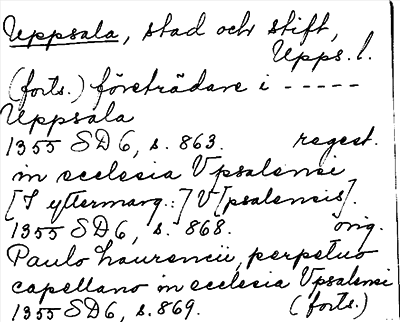 Uppsala, stad och stift,
Upps. l.
(forts.) företrädare i - - - - -
Uppsala
1355 SD6, s. 863. regest.
in ecclesia Vpsalensi
[I yttermarg.:] V[psalensis].
1355 SD6, s. 868. orig.
Paulo Laurencii, perpetuo
capellano in ecclesia Vpsalensi
1355 SD6, s. 869. (forts.)